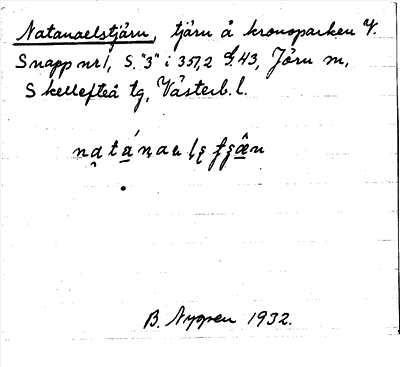 Natanaelstjärn, tjärn å kronoparken V.
Snapp nr 1, S. "3" i 351,2 S. 43, Jörn m,
Skellefteå tg, Västerb. l.
B. Nygren 1932.